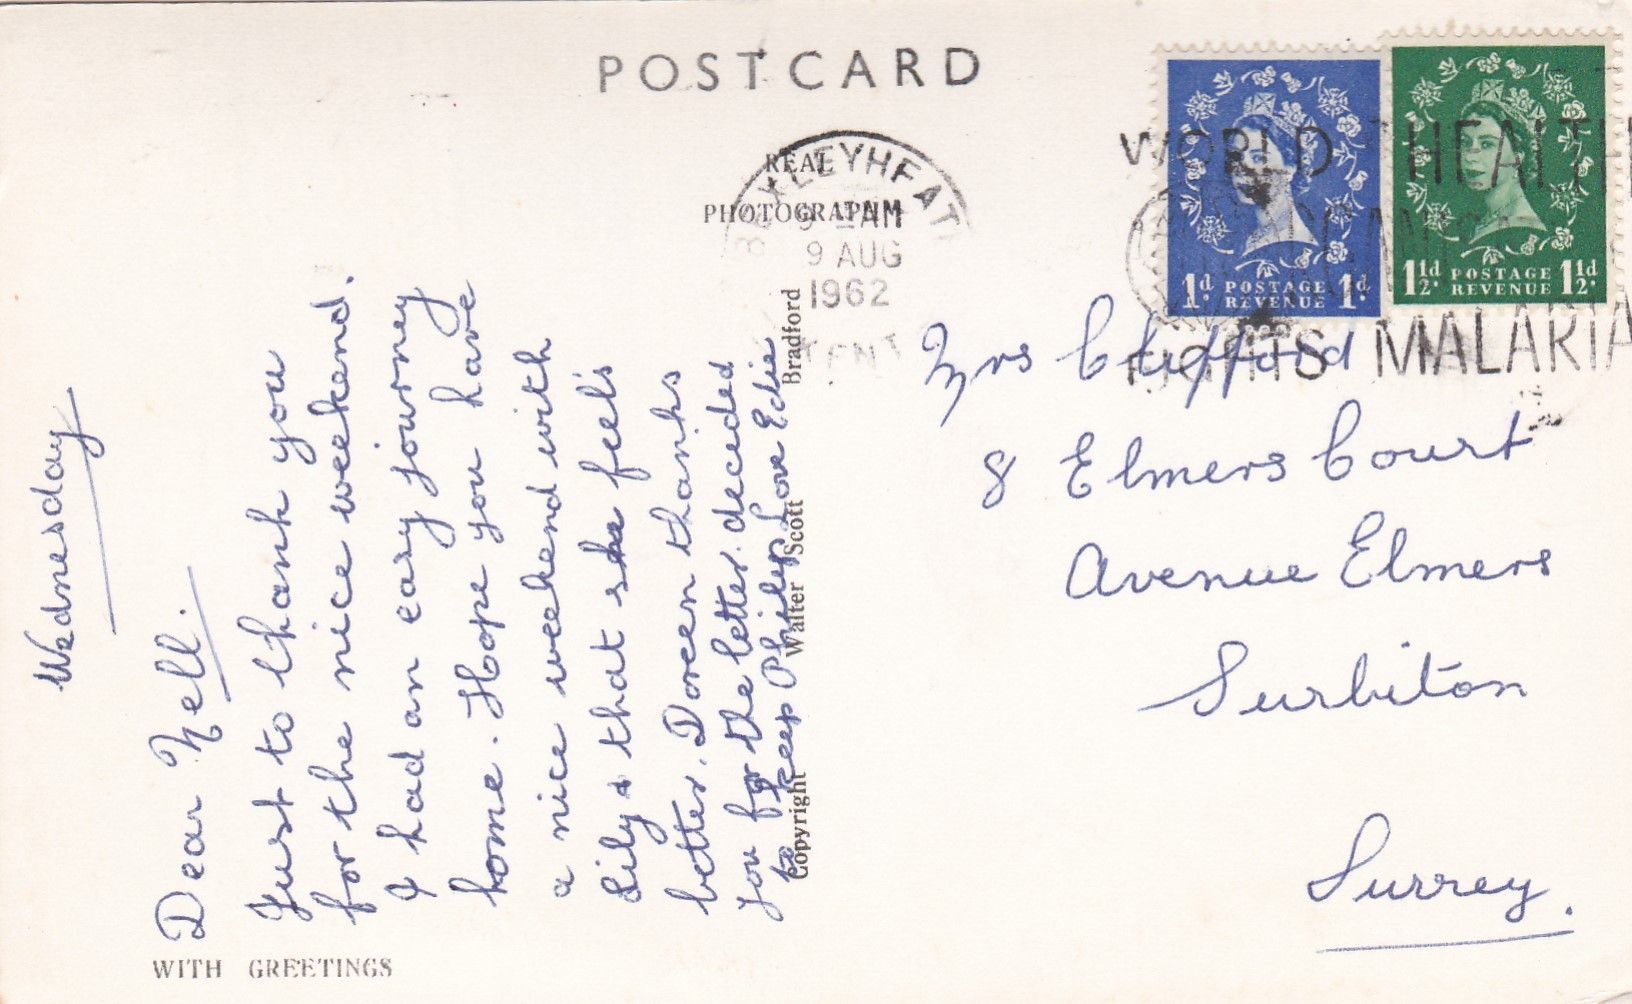 POSTCARD
REAL
PHOTOGRAPH
BEXLEYHEATH
9 AUG
1962
KENT
WORLD HEALTH
FIGHTS MALARIA
1d. POSTAGE REVENUE 1d.
1½d. POSTAGE REVENUE 1½d.
Wednesday
Dear Nell.
Just to thank you
for the nice weekend.
I had an easy journey
home. Hope you have
a nice weekend with
Lily & that she feels
better. Doreen thanks
you for the letter. decided
to keep Philip. Love Edie
Copyright Walter Scott Bradford
Mrs Clifford
8 Elmers Court
Avenue Elmers
Surbiton
Surrey.
WITH GREETINGS